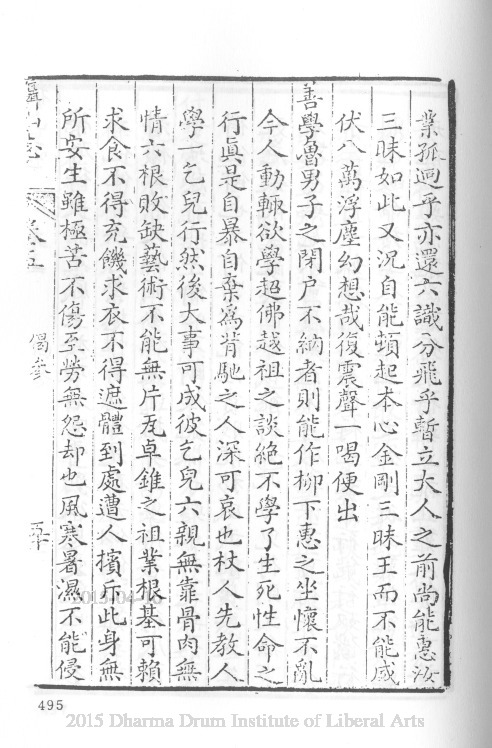 業孤迥乎亦還六識分飛乎暫立大人之前尚能惠汝
三昧如此又況自能頓起本心金剛三昧王而不能威
伏八萬浮塵幻想哉復震聲一喝便出
善學魯男子之閉戶不納者則能作柳下惠之坐懷不亂
今人動輒欲學超佛越祖之談絶不學了生死性命之
行眞是自暴自棄爲背馳之人深可哀也杖人先教人
學一乞兒行然後大事可成彼乞兒六親無靠骨肉無
情六根敗缺藝術不能無片瓦卓錐之祖業根基可賴
求食不得充饑求衣不得遮體到處遭人擯斥此身無
所安生雖極苦不傷至勞無怨却也風寒暑濕不能侵
卷五
偈参
495
2015 Dharma Drum Institute of Liberal Arts